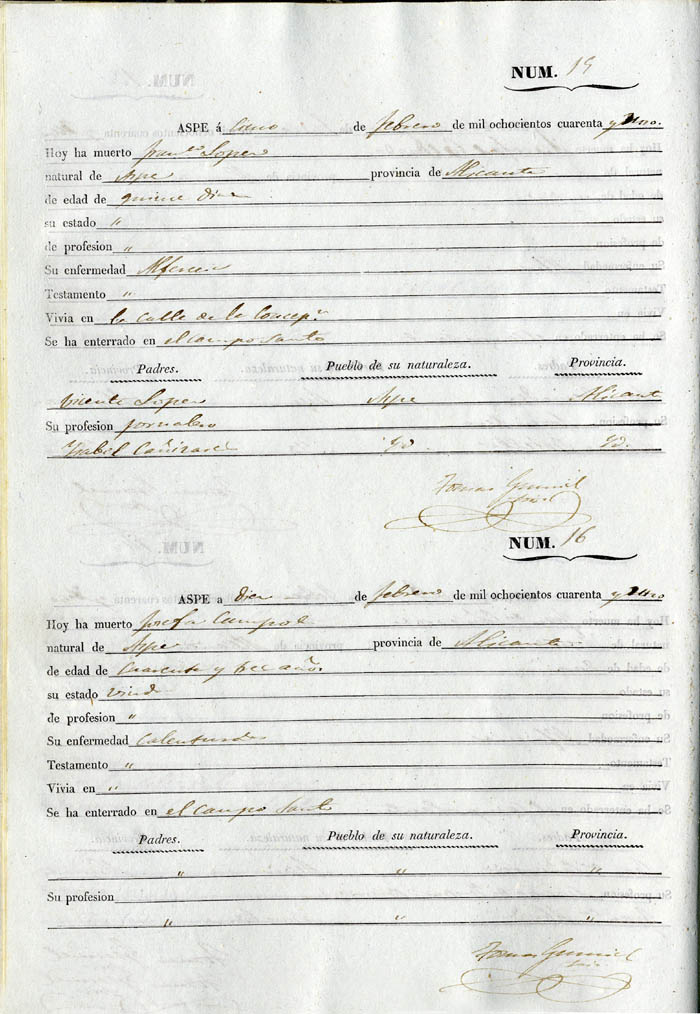 NUM. 15
ASPE á cinco de febrero de mil ochocientos cuarenta y uno.
Hoy ha muerto Franco. Lopez
natural de Aspe provincia de Alicante
de edad de quince dias
su estado "
de profesion "
Su enfermedad Alferecia
Testamento "
Vivia en la calle de la Concepn.
Se ha enterrado en el campo santo
Padres. Pueblo de su naturaleza. Provincia.
Vicente Lopez Aspe Alicant
Su profesion jornalero
Ysabel Cañizares Yd. Yd.
Tomas
NUM. 16
ASPE a diez de febrero de mil ochocientos cuarenta y uno
Hoy ha muerto Josefa
natural de Aspe provincia de Alicante
de edad de cuarenta y tres años.
su estado viud
de profesion "
Su enfermedad calenturas
Testamento "
Vivia en "
Se ha enterrado en el campo santo
Padres. Pueblo de su naturaleza. Provincia.
" " "
Su profesion
" " "
Tomas